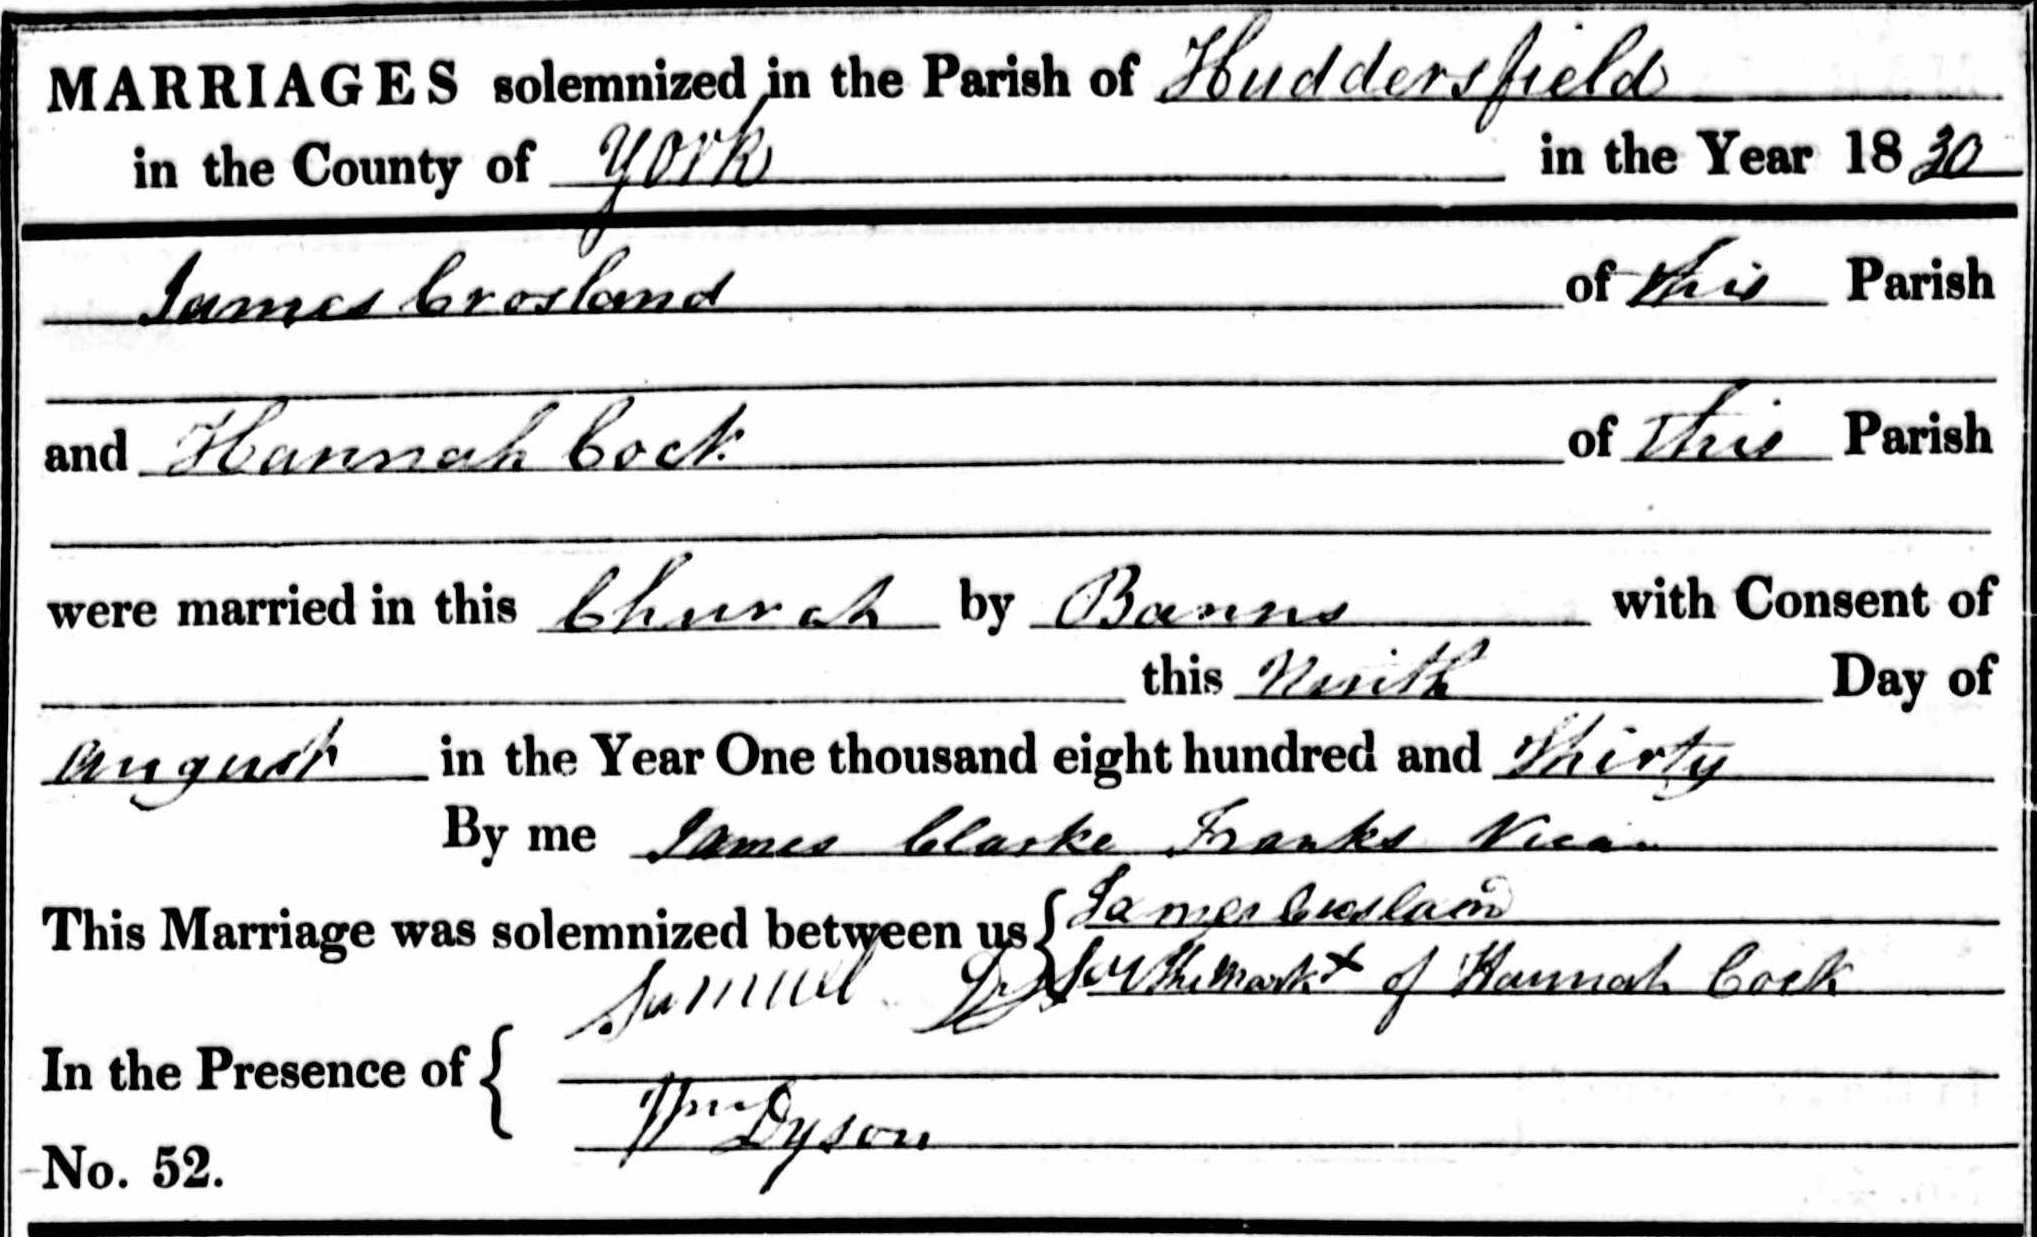 MARRIAGES solemnized in the Parish of Huddersfield
in the County of York in the Year 1830
James Crosland of this Parish
and Hannah Cock of this Parish
were married in this Church by Banns with Consent of
this Ninth Day of
August in the Year One thousand eight hundred and Thirty
By me James Clarke Franks Vicar
This Marriage was solemnized between us { James Crosland
The Mark X of Hannah Cock
In the Presence of { Samuel Dyson
Wm Dyson
No. 52.